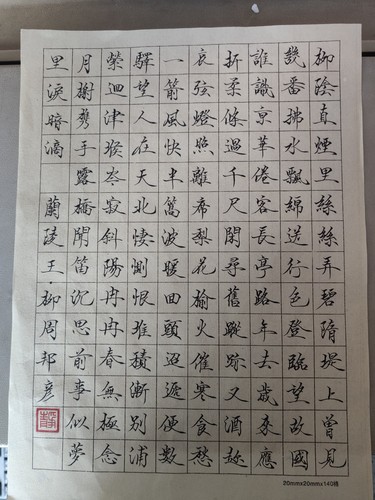 柳陰直煙里絲絲弄碧隋堤上曾見
幾番拂水飄綿送行色登臨望故國
誰識京華倦客長亭路年去歲來應
折柔條過千尺閑尋舊蹤跡又酒趁
哀弦燈照離席梨花榆火催寒食愁
一箭風快半篙波暖回頭迢遞便數
驛望人在天北悽惻恨堆積漸別浦
縈迴津堠岑寂斜陽冉冉春無極念
月榭攜手露橋聞笛沉思前事似夢
里淚暗滴 蘭陵王柳周邦彥
靜
20mmx20mmx140格